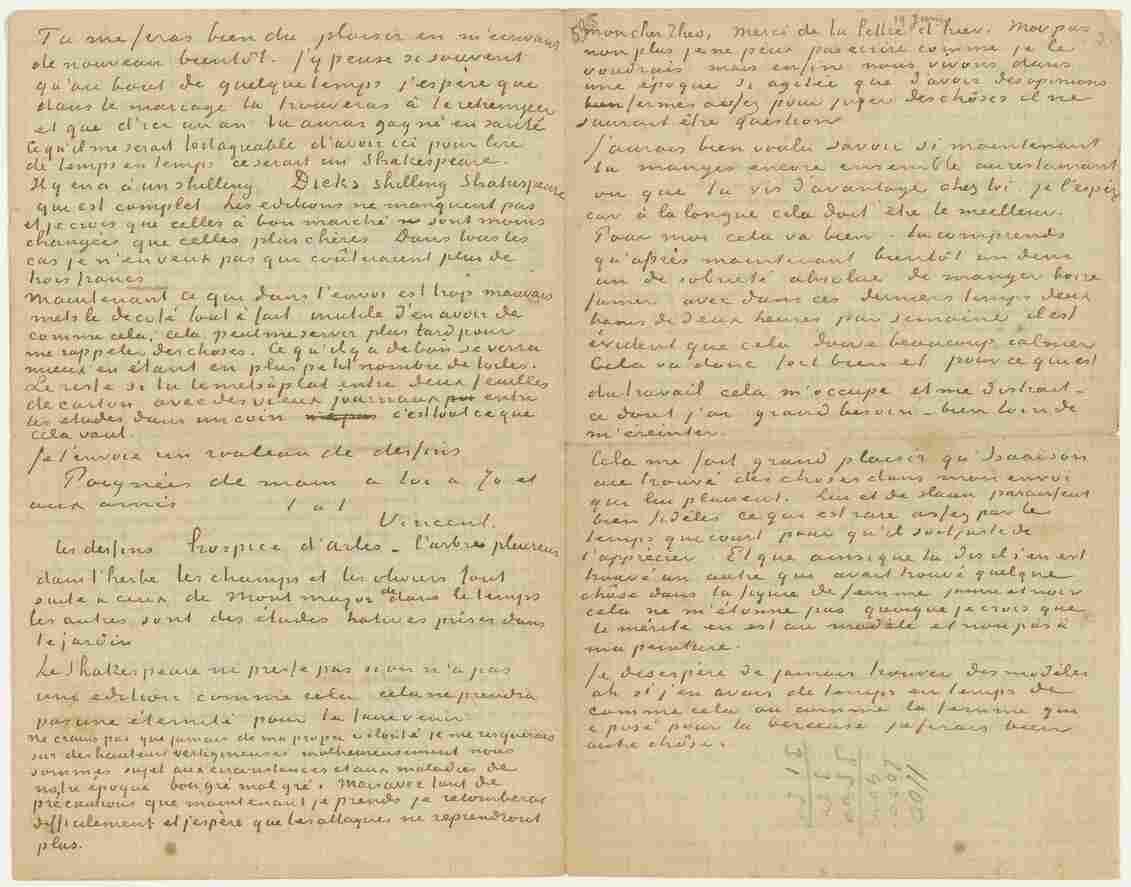 Tu me feras bien du plaisir en m'ecrivant
de nouveau bientôt. J'y pense si souvent
qu'au bout de quelque temps j'espère que
dans le mariage tu trouveras à te retremper
et que d'ici un an tu auras gagné en santé
Ce qu'il me serait fort agreable d'avoir ici pour lire
de temps en temps ce serait un Shakespeare.
Il y en a à un shilling Dicks shilling Shakespeare
qui est complet. Les editions ne manquent pas
et je crois que celles à bon marché sont moins
changées que celles plus chères. Dans tous les
cas je n'en veux pas qui coûteraient plus de
trois francs
Maintenant ce que dans l'envoi est trop mauvais
mets le de coté tout à fait inutile d'en avoir de
comme cela, cela peut me servir plus tard pour
me rappeler des choses. Ce qu'il y a de bon se verra
mieux en étant en plus petit nombre de toiles.
Le reste si tu le mets à plat entre deux feuilles
de carton avec des vieux journaux entre
les etudes dans un coin c'est tout ce que
cela vaut.
Je t'envoie un rouleau de dessins
Poignées de main à toi à Jo et
aux amis t à t
Vincent.
les dessins hospice d'Arles – l'arbre pleureur
dans l'herbe les champs et les oliviers font
suite à ceux de Montmajour de dans le temps
les autres sont des études hatives prises dans
le jardin
Le Shakespeare ne presse pas si on n'a pas
une edition comme cela cela ne prendra
pas une éternité pour la faire venir
ne crains pas que jamais de ma propre volonté je me risquerais
sur des hauteurs vertigineuses malheureusement nous
sommes sujet aux circonstances et aux maladies de
notre époque bon gré mal gré. Mais avec tant de
précautions que maintenant je prends je retomberai
difficilement et j'espère que les attaques ne reprendront
plus.
19 Juin
mon cher Theo, Merci de ta lettre d'hier. Moi pas
non plus je ne peux pas ecrire comme je le
voudrais mais enfin nous vivons dans
une époque si agitée que d'avoir des opinions
fermes assez pour juger des chôses il ne
saurait être question
J'aurais bien voulu savoir si maintenant
tu manges encore ensemble au restaurant
ou que tu vis d'avantage chez toi. je l'espère
car à la longue cela doit être le meilleur.
Pour moi cela va bien – tu comprends
qu'après maintenant bientôt un demi
an de sobrieté absolue de manger boire
fumer avec dans ces derniers temps deux
bains de deux heures par semaine il est
évident que cela doive beaucoup calmer
Cela va donc fort bien et pour ce qui est
du travail cela m'occupe et me distrait –
ce dont j'ai grand besoin – bien loin de
m'éreinter.
Cela me fait grand plaisir qu'Isaäcson
aie trouvé des choses dans mon envoi
qui lui plaisent. Lui et de Haan paraissent
bien fidèles ce qui est rare assez par le
temps qui court pour qu'il soit juste de
l'apprécier. Et que ainsi que tu dis il s'en est
trouvé un autre qui avait trouvé quelque
chôse dans la figure de femme jaune et noir
cela ne m'étonne pas quoique je crois que
le mérite en est au modèle et non pas à
ma peinture.
Je desespère de jamais trouver des modèles
ah si j'en avais de temps en temps de
comme cela ou comme la femme qui
a posé pour la berceuse je ferais bien
autre chôse.